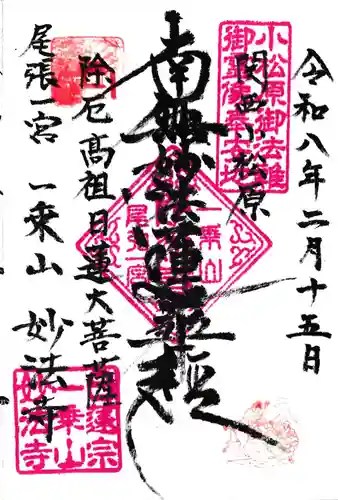 令和八年二月十五日
関西小松原
小松原御法難
御霊像奉安場
南無妙法蓮華経
除厄高祖日蓮大菩薩
尾張一宮 一乗山 妙法寺
一乗山
尾張一宮
日蓮宗
一乗山
妙法寺